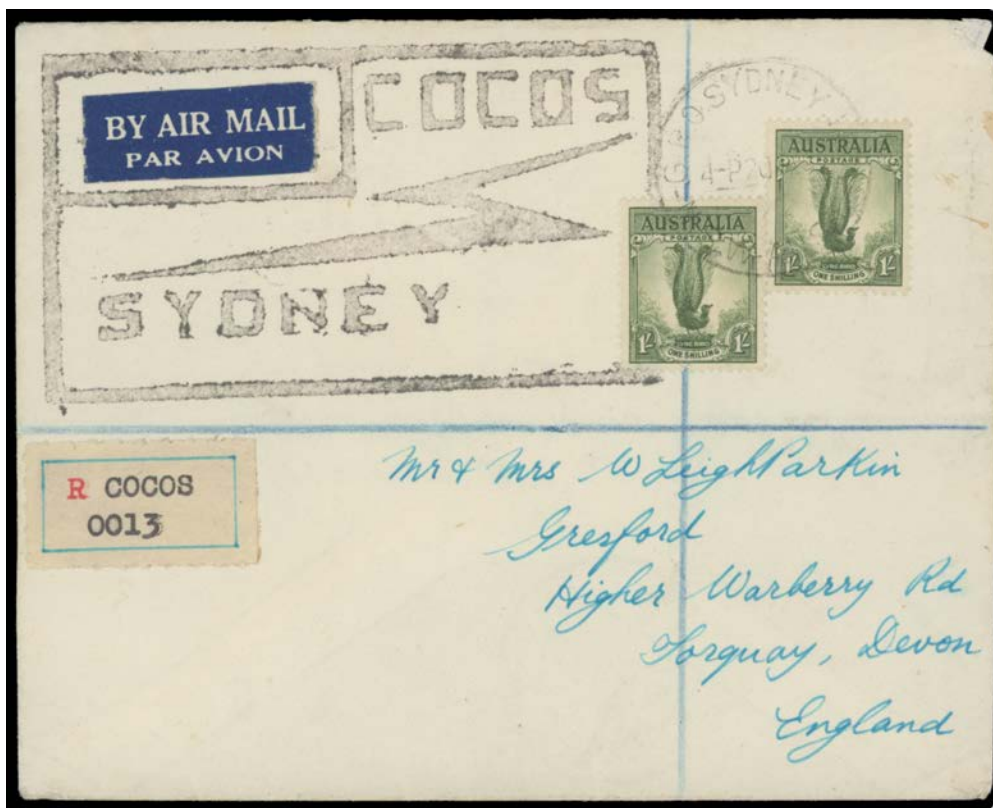 BY AIR MAIL
PAR AVION
COCOS
SYDNEY
SYDNEY
AUSTRALIA
POSTAGE
1/-
1/-
ONE SHILLING
AUSTRALIA
POSTAGE
1/-
1/-
ONE SHILLING
R COCOS
0013
Mr & Mrs W Leigh Parkin
Gresford
Higher Warberry Rd
Torquay, Devon
England